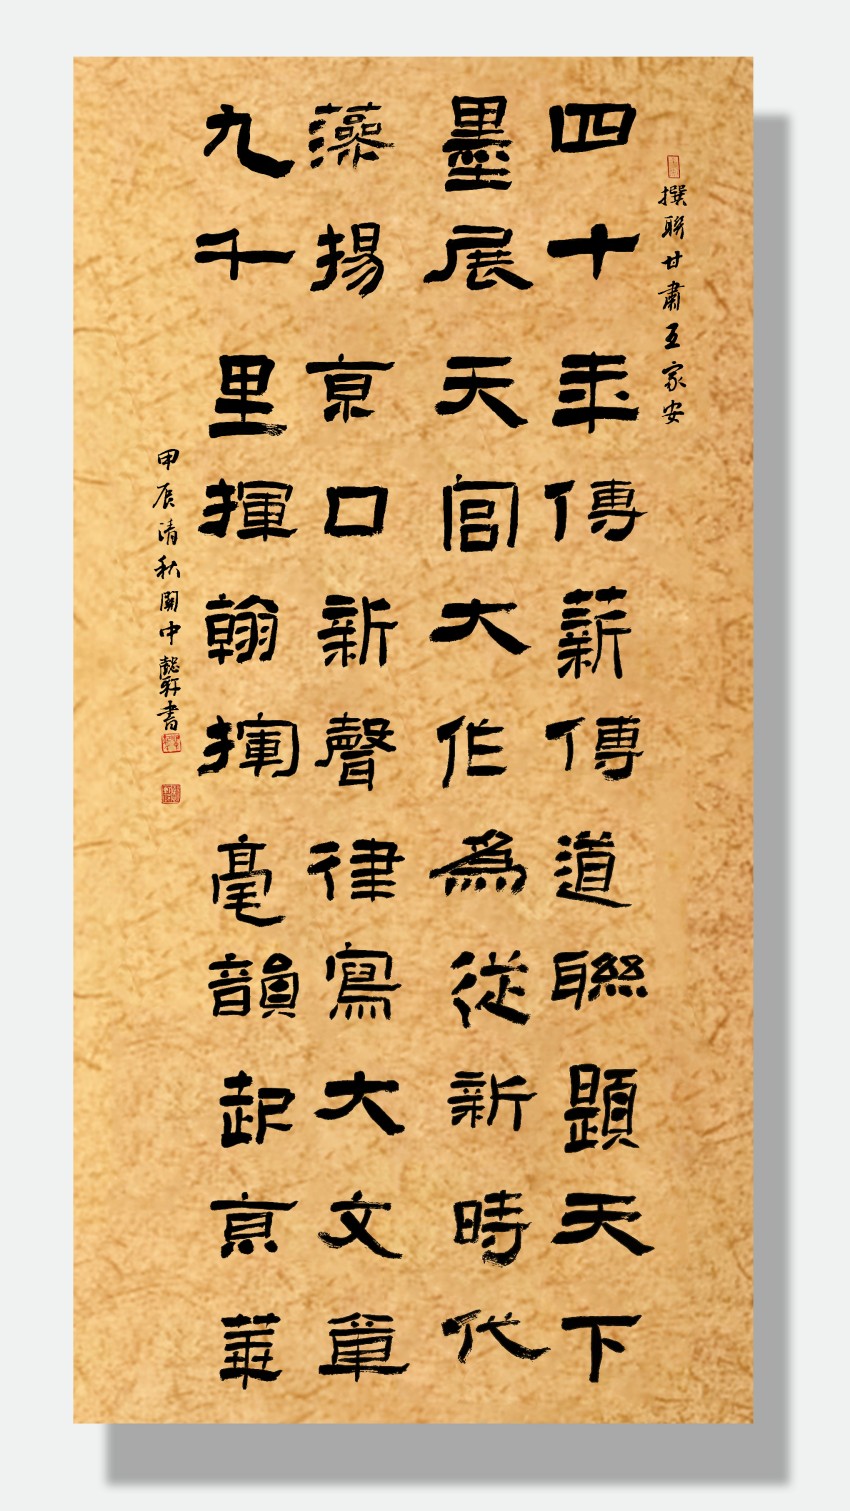 撰聯甘肅王家安
四十年傳薪傳道聯題天下
墨展天宮大作為從新時代
藻揚京口新聲律寫大文章
九千里揮翰揮毫韻起京華
甲辰清秋關中懿軒書